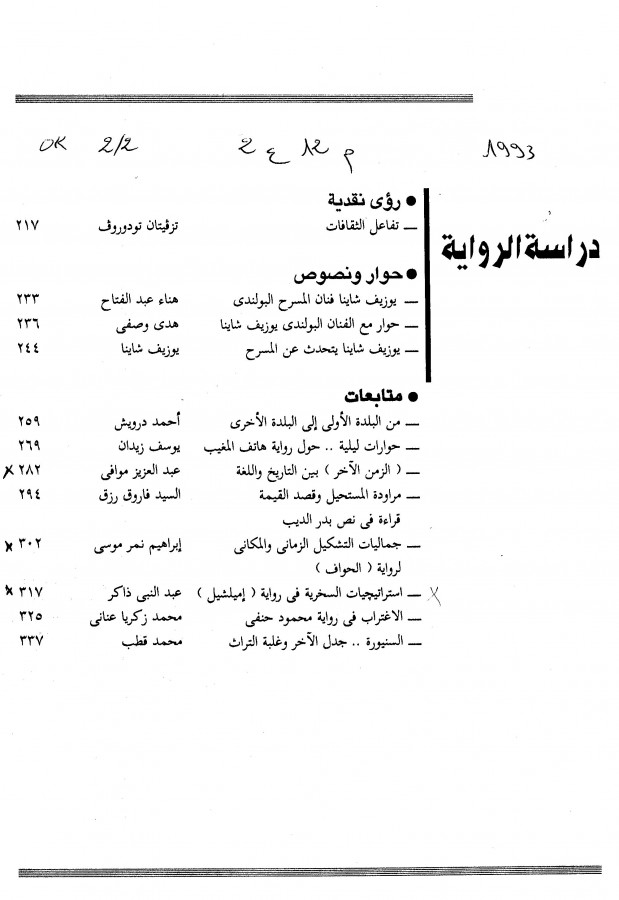 1993 م 12 ع 2 2/2 OK
دراسة الرواية
● رؤى نقدية
ــ تفاعل الثقافات تزڤيتان تودوروڤ ٢١٧
● حوار ونصوص
ــ يوزيف شاينا فنان المسرح البولندى هناء عبد الفتاح ٢٣٣
ــ حوار مع الفنان البولندى يوزيف شاينا هدى وصفى ٢٣٦
ــ يوزيف شاينا يتحدث عن المسرح يوزيف شاينا ٢٤٤
● متابعات
ــ من البلدة الأولى إلى البلدة الأخرى أحمد درويش ٢٥٩
ــ حوارات ليلية .. حول رواية هاتف المغيب يوسف زيدان ٢٦٩
ــ ( الزمن الآخر ) بين التاريخ واللغة عبد العزيز موافى ٢٨٢ x
ــ مراودة المستحيل وقصد القيمة السيد فاروق رزق ٢٩٤
قراءة فى نص بدر الديب
ــ جماليات التشكيل الزمانى والمكانى إبراهيم نمر موسى ٣٠٢ x
لرواية ( الحواف )
x ــ استراتيجيات السخرية فى رواية ( إميلشيل ) عبد النبى ذاكر ٣١٧ x
ــ الاغتراب فى رواية محمود حنفى محمد زكريا عنانى ٣٢٥
ــ السنيورة .. جدل الآخر وغلبة التراث محمد قطب ٣٣٧